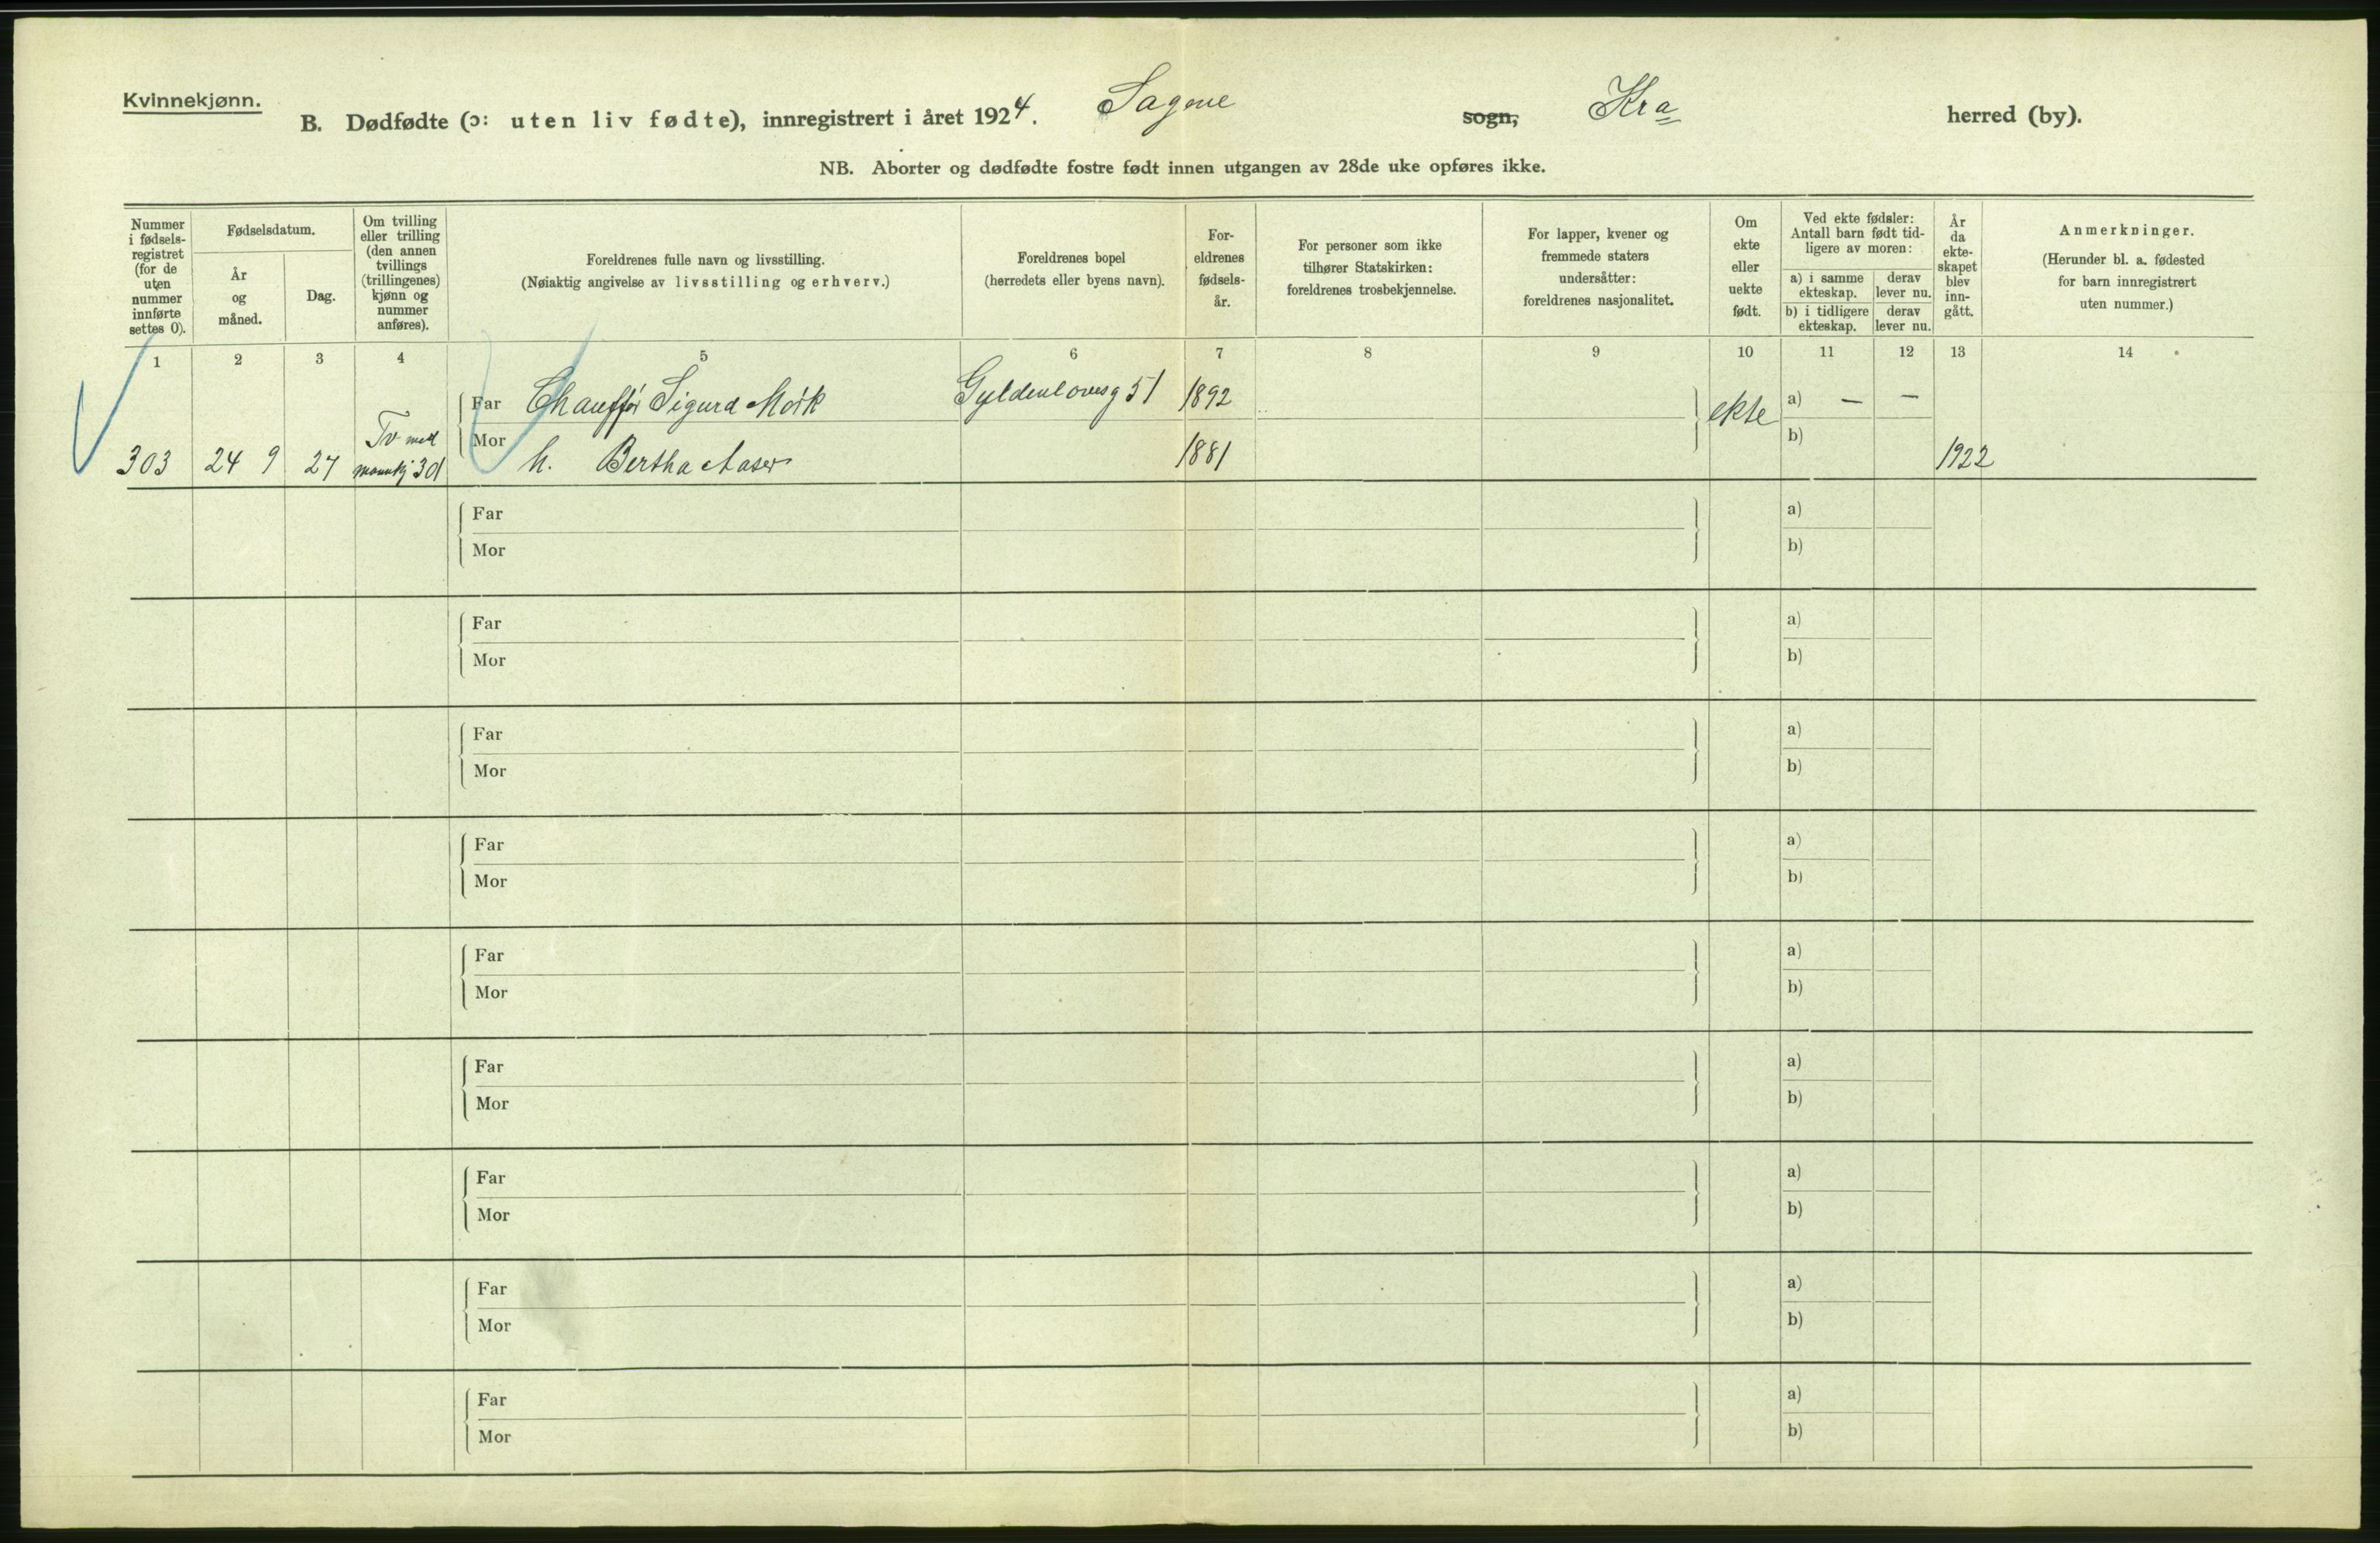 Kvinnekjønn.
B. Dødfødte (ɔ: uten liv fødte), innregistrert i året 1924. Sagene sogn, Kra herred (by).
NB. Aborter og dødfødte fostre født innen utgangen av 28de uke opføres ikke.
Nummer
i fødsels-
registret
(for de
uten
nummer
innførte
settes 0).
Fødselsdatum.
År
og
måned.
Dag.
Om tvilling
eller trilling
(den annen
tvillings
(trillingenes)
kjønn og
nummer
anføres).
Foreldrenes fulle navn og livsstilling.
(Nøiaktig angivelse av livsstilling og erhverv.)
Foreldrenes bopel
(herredets eller byens navn).
For-
eldrenes
fødsels-
år.
For personer som ikke
tilhører Statskirken:
foreldrenes trosbekjennelse.
For lapper, kvener og
fremmede staters
undersåtter:
foreldrenes nasjonalitet.
Om
ekte
eller
uekte
født.
Ved ekte fødsler:
Antall barn født tid-
ligere av moren:
a) i samme
ekteskap.
derav
lever nu.
b) i tidligere
ekteskap.
derav
lever nu.
År
da
ekte-
skapet
blev
inn-
gått.
Anmerkninger.
(Herunder bl. a. fødested
for barn innregistrert
uten nummer.)
1 2 3 4 5 6 7 8 9 10 11 12 13 14
Far Chauffør Sigurd Mørk Gyldenlovesg 51 1892 ekte a) — —
Tv med
303 24 9 27 mannkj 301 Mor h. Bertha 1881 b) 1922
Far a)
Mor b)
Far a)
Mor b)
Far a)
Mor b)
Far a)
Mor b)
Far a)
Mor b)
Far a)
Mor b)
Far a)
Mor b)
Far a)
Mor b)
Far a)
Mor b)